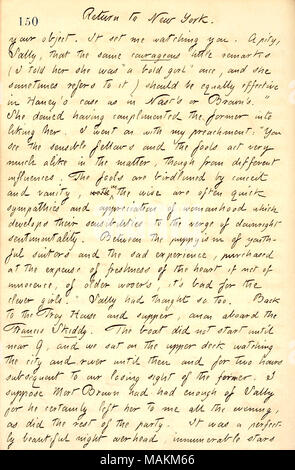 150
Return to New York.
your object. It set me watching you. A pity,
Sally, that the same courageous little remarks
(I told her she was "a bold girl" once, and she
sometimes refers to it) should be equally effective
in Haney's case as in Nast's or Brown's."
She denied having complimented the former into
liking her. I went on with my preachment: "You
see the sensible fellows and the fools act very
much alike in the matter, though from different
influences. The fools are birdlimed by conceit
and vanity the wise are often quick
sympathies and appreciation of womanhood which
develops their sensibilities to the verge of downright
sentimentality. Between the puppyism of youth-
ful suitors and the sad experience, purchased
at the expense of freshness of the heart if not of
innocence, of older wooers, it's bad for the
clever girls." Sally had thought so too. Back
to the Troy House and supper, anon aboard the
Francis Skiddy. The boat did not start until
near 9, and we sat on the upper deck watching
the city and river until then and for two hours
subsequent to our losing sight of the former. I
suppose Mort Brown had had enough of Sally
for he certainly left her to me all the evening,
as did the rest of the party. It was a perfect-
ly beautiful night overhead, innumerable stars
alamy
www.alamy.com - MAKM66